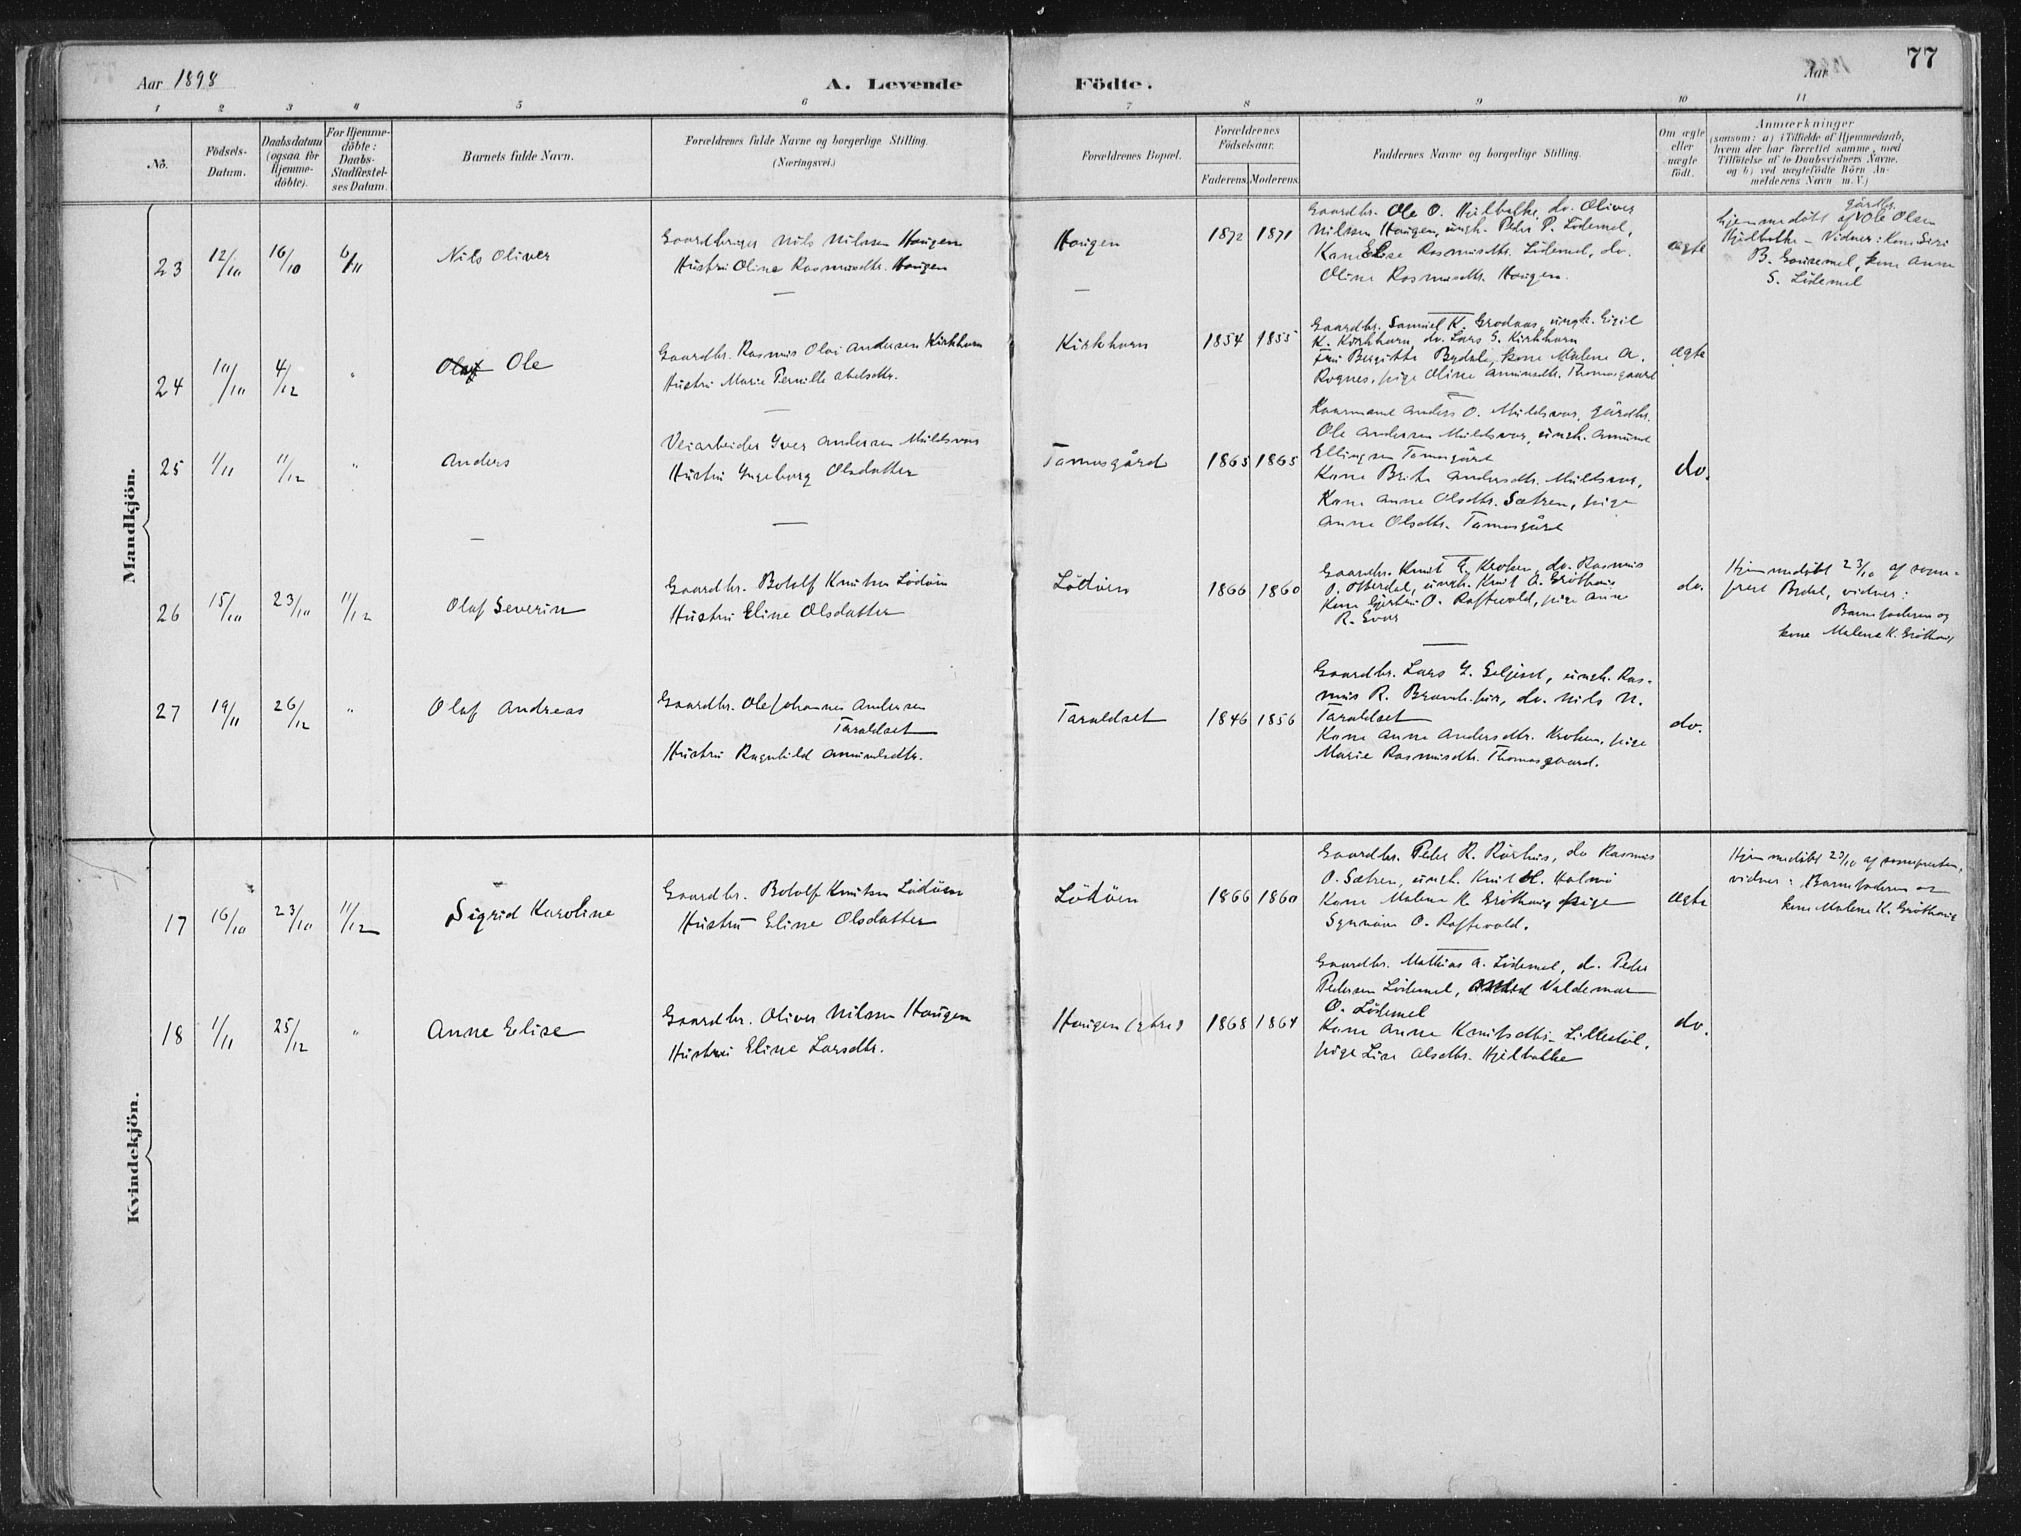 77
Aar 1898
A. Levende Födte.
Aar
1 2 3 4 5 6 7 8 9 10 11
No.
Födsels-
Datum.
Daabsdatum
(ogsaa for
Hjemme-
döbte).
For Hjemme-
döbte:
Daabs-
Stadfæstel-
ses Datum.
Barnets fulde Navn.
Forældrenes fulde Navne og borgerlige Stilling.
(Næringsvei.)
Forældrenes Bopæl.
Forældrenes
Födselsaar.
Faderens. Moderens.
Faddernes Navne og borgerlige Stilling.
Om ægte
eller
uægte
födt.
Anmærkninger
(saasom: a) i Tilfælde af Hjemmedaab,
hvem der har forrettet samme, med
Tilföielse af to Daabsvidners Navne.
og b) ved uægtefödte Börn An-
melderens Navn m. V.)
Mandkjön.
23 12/10 16/10 6/11
Nils Oliver
Gaardbruger Nils Nilssen Haugen
Hustru Oline Rasmusdtr. Haugen
Haugen
1872 1871
Gaardbr. Ole O. Hjelbakke, do. Oliver
Nilssen Haugen, ungk. Peder P. Lödemel,
Kone Else Rasmusdtr. Lödemel, do.
Oline Rasmusdtr. Haugen.
ægte
gårdbr.
hjemmedöbt af Ole Olsen
Hjelbakke - Vidner: Kone Siri
B. kone Anne
S. Lödemel
24 10/10 4/12 "
Ole
Gaardbr. Rasmus Olai Andersen Kirkhorn
Hustru Marie Pernille Abelsdtr.
Kirkhorn
1854 1855
Gaardbr. Samuel K. Grodaas, ungk. Eigil
K. Kirkhorn, do. Lars G. Kirkhorn
Fru Birgitte Bydal, kone Malene A.
Rognes, pige Oline Amundsdtr. Thomasgaard
ægte
25 1/11 11/12 "
Anders
Veiarbeider Iver Andersen Muldsvor
Hustru Ingeborg Olsdatter
Tomasgård
1865 1865
Kaarmand Anders O. Muldsvor, gårdbr.
Ole Andersen Muldsvor, ungk. Amund
Ellingsen Tomasgård
Kone Brite Andersdtr. Muldsvor,
Kone Anne Olsdtr. Sætren, pige
Anne Olsdtr. Tomasgård
do.
26 15/10 23/10 11/12
Olaf Severin
Gaardbr. Botolf Knutsen Lödöen
Hustru Eline Olsdatter
Lödöen
1866 1860
Gaardbr. Knut E. Kroken, do. Rasmus
O. Otterdal, ungk. Knut A. Gröthaug
Kone Gjertrú O. Raftevold, pige Anne
R. Evor
do.
Hjemmedöbt 23/10 af sogne-
prest Bydal, vidner:
Barnefaderen og
kone Malene K. Gröthaug
27 19/11 26/12 "
Olaf Andreas
Gaardbr. Ole Johannes Andersen
Taraldset
Hustru Ragnhild Amundsdtr.
Taraldset
1846 1856
Gaardbr. Lars G. Seljeset, ungk. Ras-
mus R. do. Nils N.
Taraldset
Kone Anne Andersdtr. Kroken, pige
Marie Rasmusdtr. Thomasgaard.
do.
Kvindekjön.
17 16/10 23/10 11/12
Sigrid Karoline
Gaardbr. Botolf Knutsen Lödöen
Hustru Eline Olsdatter
Lödöen
1866 1860
Gaardbr. Peder R. Rörhus, do Rasmus
O. Sætren, ungk. Knut H. Holmö
Kone Malene K Gröthaug pige
Synnöve O. Raftevold.
ægte
Hjemmedöbt 23/10 af sognepresten,
vidner: Barnefaderen og
kone Malene K. Gröthaug
18 1/11 25/12 "
Anne Elise
Gaardbr. Oliver Nilssen Haugen
Hustru Eline Larsdtr.
Haugen
1868 1864
Gaardbr. Mathias A. Lödemel, do. Peder
Pedersen Lödemel, Valdemar
O. Lödemel
Kone Anne Knutsdtr. Lillestöl,
pige Lise Olsdtr. Hjelbakke
do.